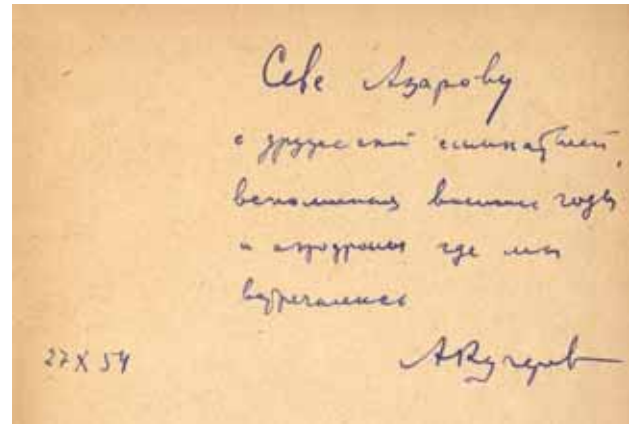 Севе Азарову
с дружеской симпатией,
вспоминая военные годы
и аэродромы где мы
встречались
27 X 54
АКучеров